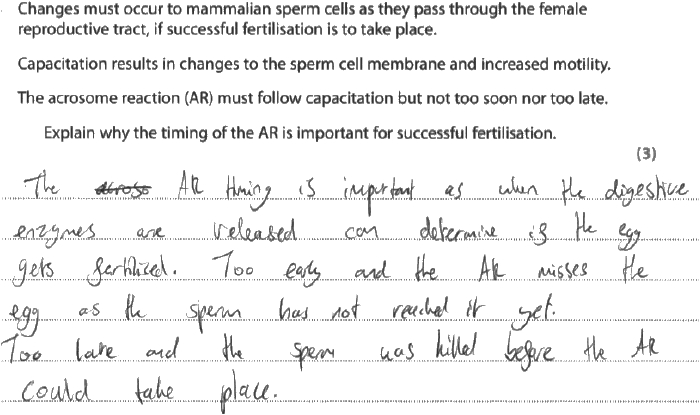 Changes must occur to mammalian sperm cells as they pass through the female
reproductive tract, if successful fertilisation is to take place.
Capacitation results in changes to the sperm cell membrane and increased motility.
The acrosome reaction (AR) must follow capacitation but not too soon nor too late.
Explain why the timing of the AR is important for successful fertilisation.
(3)
The AR timing is important as when the digestive
enzymes are released can determine if the egg
gets fertilised. Too early and the AR misses the
egg as the sperm has not reached it yet.
Too late and the sperm was killed before the AR
could take place.